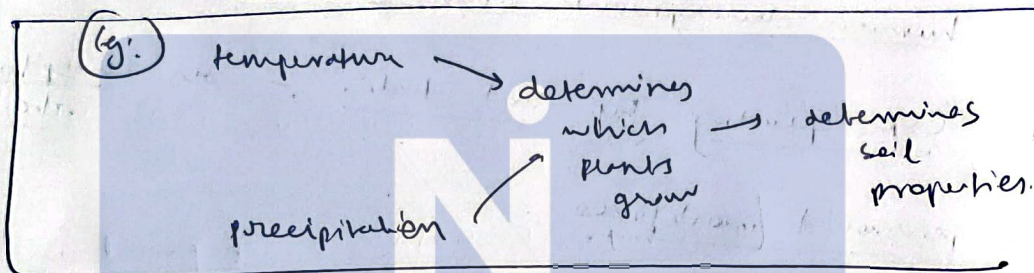 Eg:
temperature
determines
which
plants
grow
determines
soil
properties.
precipitation